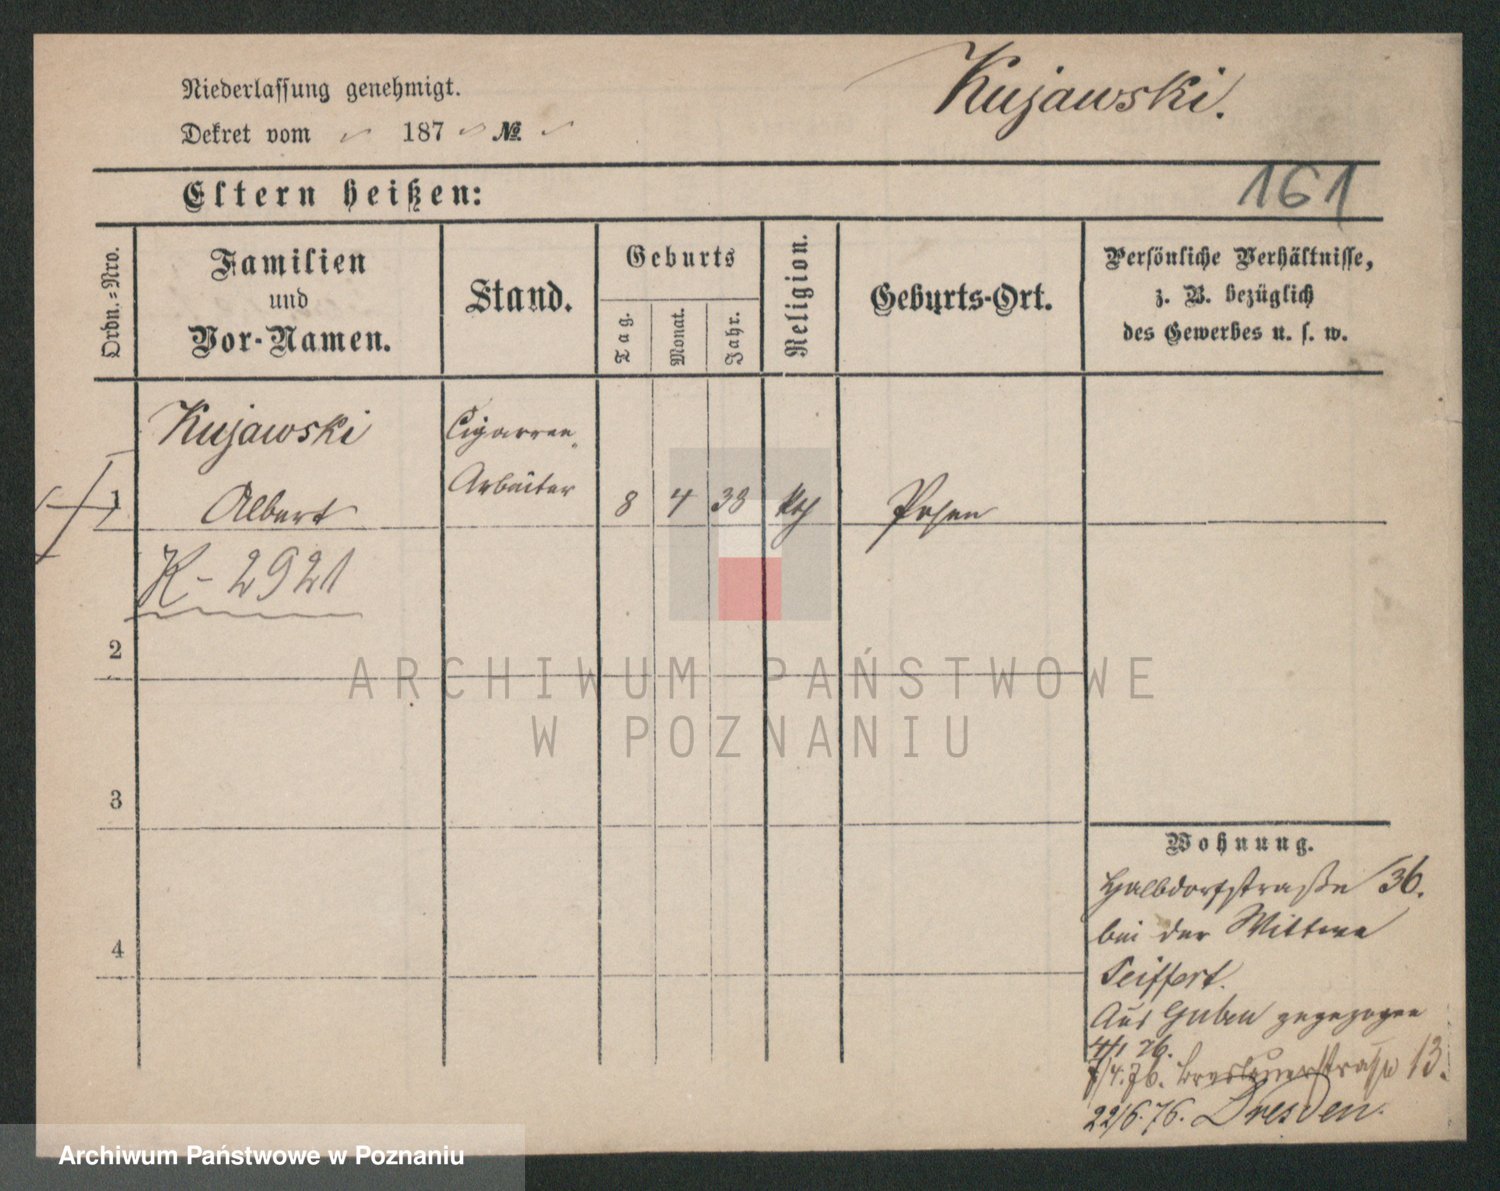 Niederlassung genehmigt.
Kujawski.
Dekret vom 187 №
Eltern heißen:
161
Ordn.=Nro.
Familien
und
Vor-Namen.
Stand.
Geburts
Tag.
Monat.
Jahr.
Religion.
Geburts-Ort.
Persönliche Verhältnisse,
z. B. bezüglich
des Gewerbes u. s. w.
Kujawski
Cigarren
Arbeiter
1 Albert 8 4 38 kth Posen
K-2921
2
ARCHIWUM PAŃSTWOWE
W POZNANIU
3
Wohnung.
Halbdorfstraße 36.
bei der Wittwe
Seiffert.
4
Aus Guben zugezogen
4/1 76.
7/4.76. Breslauerstraße 13.
22/6.76. Dresden.
Archiwum Państwowe w Poznaniu